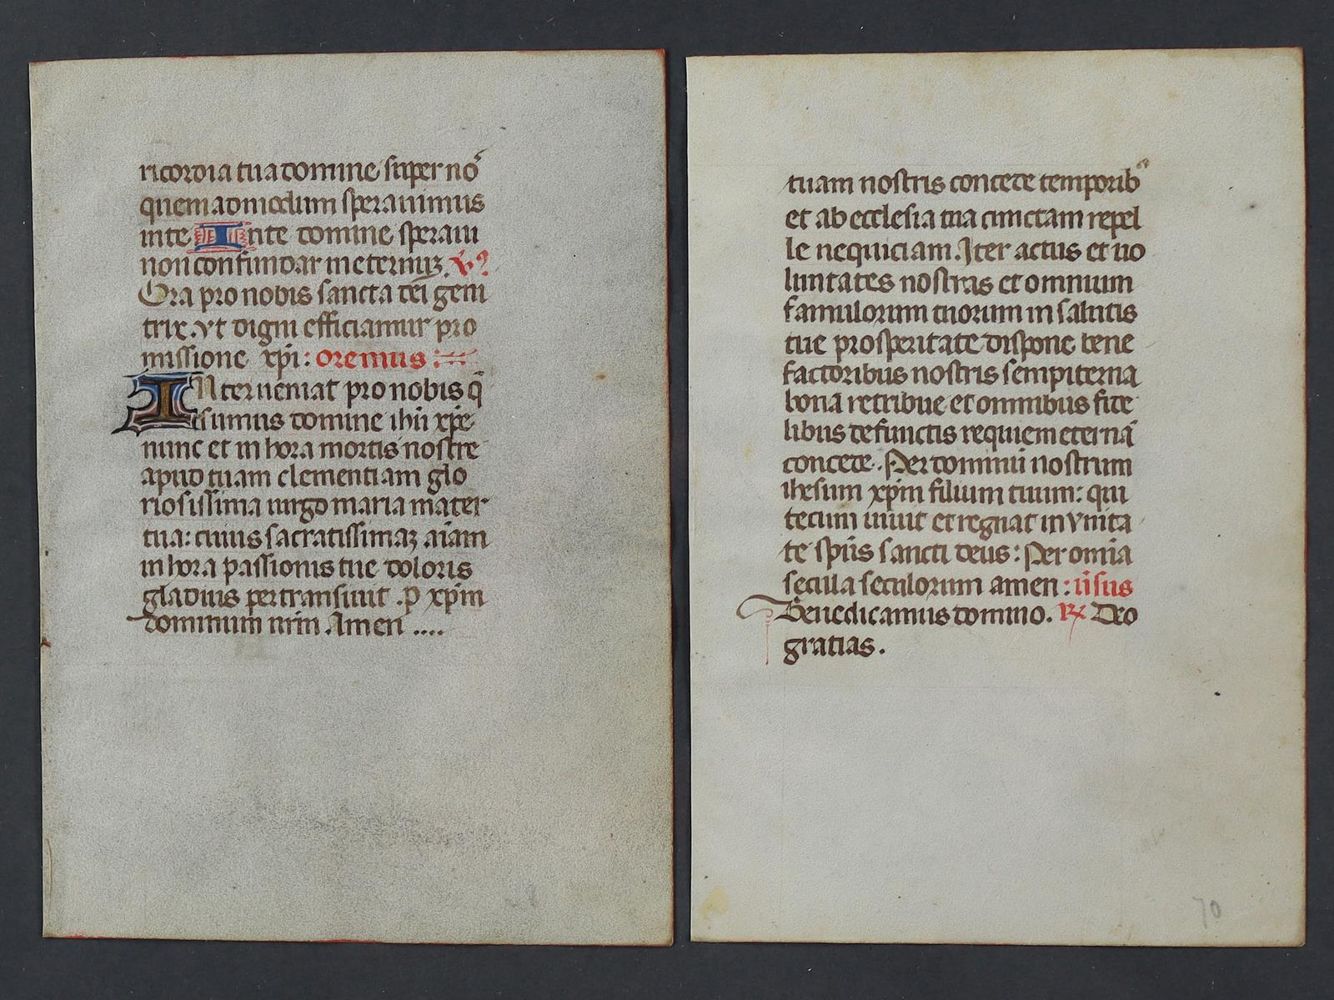 ricordia tua domine super nō
quemadmodum sperauimus
inte Inte domine speraui
non confundar ineternuȝ. V̄
Ora pro nobis sancta dei geni
trix. vt digni efficiamur pro
missione xp̄i: oremus :
INterueniat pro nobis q̄
sumus domine ihū xp̄e
nunc et in hora mortis nostre
apud tuam clementiam glo
riosissima uirgo maria mater
tua: cuius sacratissimaȝ aīam
in hora passionis tue doloris
gladius pertransiuit . P xp̄m
dominum nrm̄ . Amen ....
tuam nostris concede temporibꝰ
et ab ecclesia tua cunctam repel
le nequiciam. Iter actus et uo
luntates nostras et omnium
famulorum tuorum in salutis
tue prosperitate dispone bene
factoribus nostris sempiterna
bona retribue et omnibus fide
libus defunctis requiem eternā
concede. Per dominū nostrum
ihesum xp̄m filium tuum: qui
tecum uiuit et regnat in vnita
te sp̄us sancti deus: Per om̄ia
secula seculorum amen : ūsus
Benedicamus domino. R̷ Deo
gratias.
70